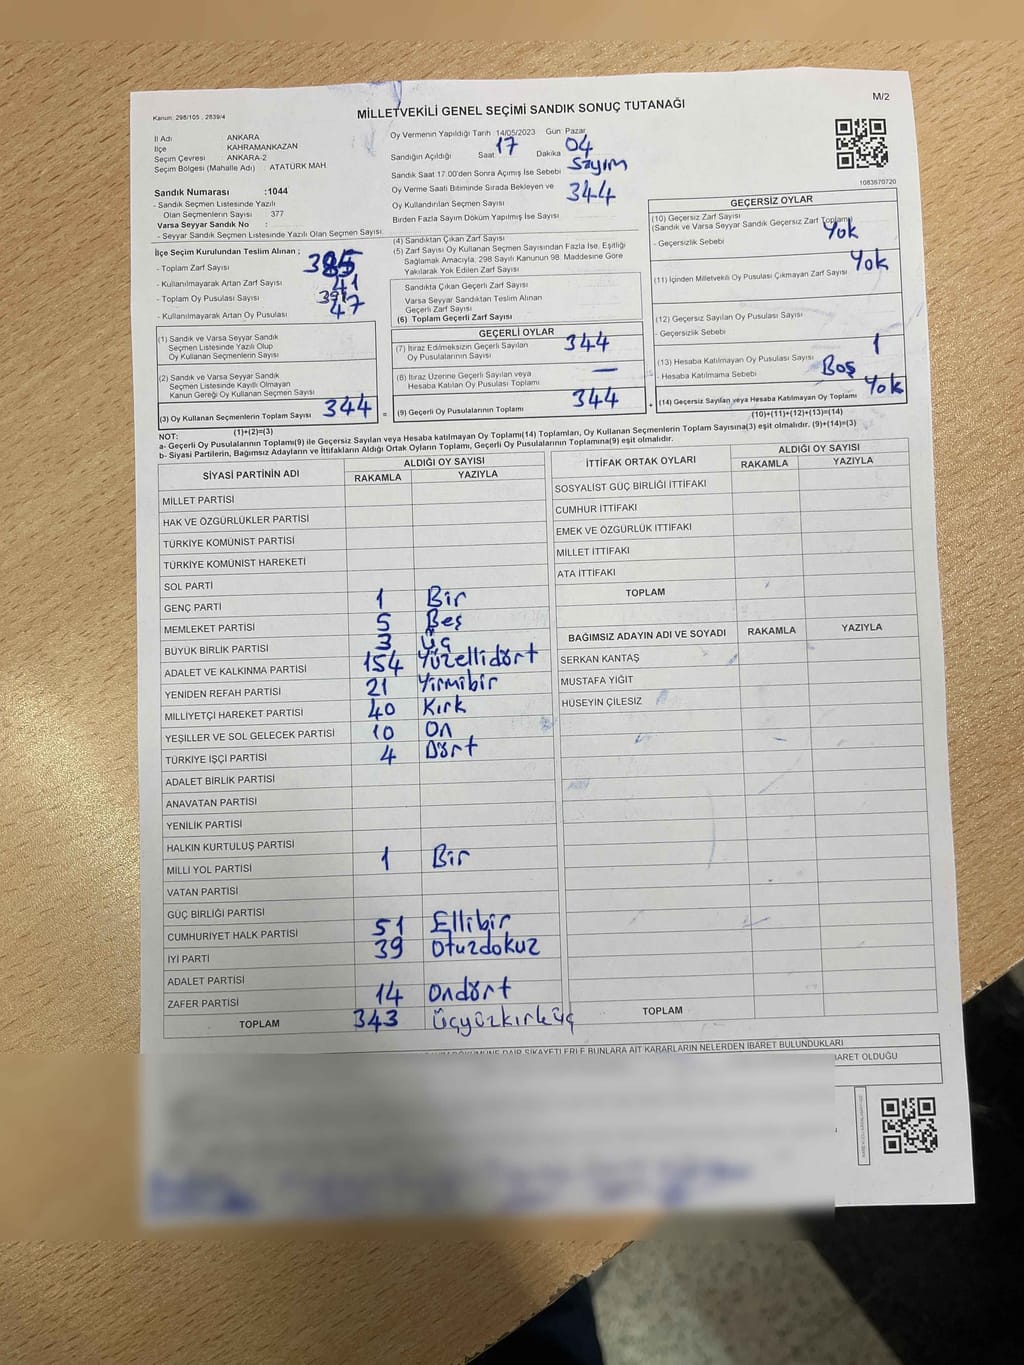 MİLLETVEKİLİ GENEL SEÇİMİ SANDIK SONUÇ TUTANAĞI
M/2
Kanun: 298/105 , 2839/4
İl Adı ANKARA
İlçe KAHRAMANKAZAN
Seçim Çevresi ANKARA-2
Seçim Bölgesi (Mahalle Adı) : ATATÜRK MAH
Sandık Numarası :1044
- Sandık Seçmen Listesinde Yazılı
Olan Seçmenlerin Sayısı 377
Varsa Seyyar Sandık No :
- Seyyar Sandık Seçmen Listesinde Yazılı Olan Seçmen Sayısı:
İlçe Seçim Kurulundan Teslim Alınan ;
- Toplam Zarf Sayısı
- Kullanılmayarak Artan Zarf Sayısı 41
- Toplam Oy Pusulası Sayısı
- Kullanılmayarak Artan Oy Pusulası 47
(1) Sandık ve Varsa Seyyar Sandık
Seçmen Listesinde Yazılı Olup
Oy Kullanan Seçmenlerin Sayısı
(2) Sandık ve Varsa Seyyar Sandık
Seçmen Listesinde Kayıtlı Olmayan
Kanun Gereği Oy Kullanan Seçmen Sayısı
(3) Oy Kullanan Seçmenlerin Toplam Sayısı 344 =
(1)+(2)=(3)
Oy Vermenin Yapıldığı Tarih 14/05/2023 Gün: Pazar
Sandığın Açıldığı Saat 17 Dakika 04
Sandık Saat 17.00'den Sonra Açılmış İse Sebebi Sayım
Oy Verme Saati Bitiminde Sırada Bekleyen ve
Oy Kullandırılan Seçmen Sayısı 344
Birden Fazla Sayım Döküm Yapılmış İse Sayısı
(4) Sandıktan Çıkan Zarf Sayısı
(5) Zarf Sayısı Oy Kullanan Seçmen Sayısından Fazla İse, Eşitliği
Sağlamak Amacıyla, 298 Sayılı Kanunun 98. Maddesine Göre
Yakılarak Yok Edilen Zarf Sayısı
Sandıkta Çıkan Geçerli Zarf Sayısı
Varsa Seyyar Sandıktan Teslim Alınan
Geçerli Zarf Sayısı
(6) Toplam Geçerli Zarf Sayısı
GEÇERLİ OYLAR
(7) İtiraz Edilmeksizin Geçerli Sayılan
Oy Pusulalarının Sayısı 344
(8) İtiraz Üzerine Geçerli Sayılan veya
Hesaba Katılan Oy Pusulası Toplamı —
(9) Geçerli Oy Pusulalarının Toplamı 344 +
1083670720
GEÇERSİZ OYLAR
(10) Geçersiz Zarf Sayısı
(Sandık ve Varsa Seyyar Sandık Geçersiz Zarf Toplamı)
- Geçersizlik Sebebi Yok
(11) İçinden Milletvekili Oy Pusulası Çıkmayan Zarf Sayısı Yok
(12) Geçersiz Sayılan Oy Pusulası Sayısı
- Geçersizlik Sebebi
(13) Hesaba Katılmayan Oy Pusulası Sayısı 1
- Hesaba Katılmama Sebebi Boş
(14) Geçersiz Sayılan veya Hesaba Katılmayan Oy Toplamı Yok
(10)+(11)+(12)+(13)=(14)
NOT:
a- Geçerli Oy Pusulalarının Toplamı(9) ile Geçersiz Sayılan veya Hesaba katılmayan Oy Toplamı(14) Toplamları, Oy Kullanan Seçmenlerin Toplam Sayısına(3) eşit olmalıdır. (9)+(14)=(3)
b- Siyasi Partilerin, Bağımsız Adayların ve İttifakların Aldığı Ortak Oyların Toplamı, Geçerli Oy Pusulalarının Toplamına(9) eşit olmalıdır.
SİYASİ PARTİNİN ADI ALDIĞI OY SAYISI
RAKAMLA YAZIYLA
MİLLET PARTİSİ
HAK VE ÖZGÜRLÜKLER PARTİSİ
TÜRKİYE KOMÜNİST PARTİSİ
TÜRKİYE KOMÜNİST HAREKETİ
SOL PARTİ
GENÇ PARTİ 1 Bir
MEMLEKET PARTİSİ 5 Beş
BÜYÜK BİRLİK PARTİSİ 3 Üç
ADALET VE KALKINMA PARTİSİ 154 Yüzellidört
YENİDEN REFAH PARTİSİ 21 Yirmibir
MİLLİYETÇİ HAREKET PARTİSİ 40 Kırk
YEŞİLLER VE SOL GELECEK PARTİSİ 10 On
TÜRKİYE İŞÇİ PARTİSİ 4 Dört
ADALET BİRLİK PARTİSİ
ANAVATAN PARTİSİ
YENİLİK PARTİSİ
HALKIN KURTULUŞ PARTİSİ
MİLLİ YOL PARTİSİ 1 Bir
VATAN PARTİSİ
GÜÇ BİRLİĞİ PARTİSİ
CUMHURİYET HALK PARTİSİ 51 Ellibir
İYİ PARTİ 39 Otuzdokuz
ADALET PARTİSİ
ZAFER PARTİSİ 14 Ondört
TOPLAM 343 Üçyüzkırküç
İTTİFAK ORTAK OYLARI ALDIĞI OY SAYISI
RAKAMLA YAZIYLA
SOSYALİST GÜÇ BİRLİĞİ İTTİFAKI
CUMHUR İTTİFAKI
EMEK VE ÖZGÜRLÜK İTTİFAKI
MİLLET İTTİFAKI
ATA İTTİFAKI
TOPLAM
BAĞIMSIZ ADAYIN ADI VE SOYADI RAKAMLA YAZIYLA
SERKAN KANTAŞ
MUSTAFA YİĞİT
HÜSEYİN ÇİLESİZ
TOPLAM
DÖKÜMÜNE DAİR ŞİKAYETLERLE BUNLARA AİT KARARLARIN NELERDEN İBARET BULUNDUKLARI
İBARET OLDUĞU